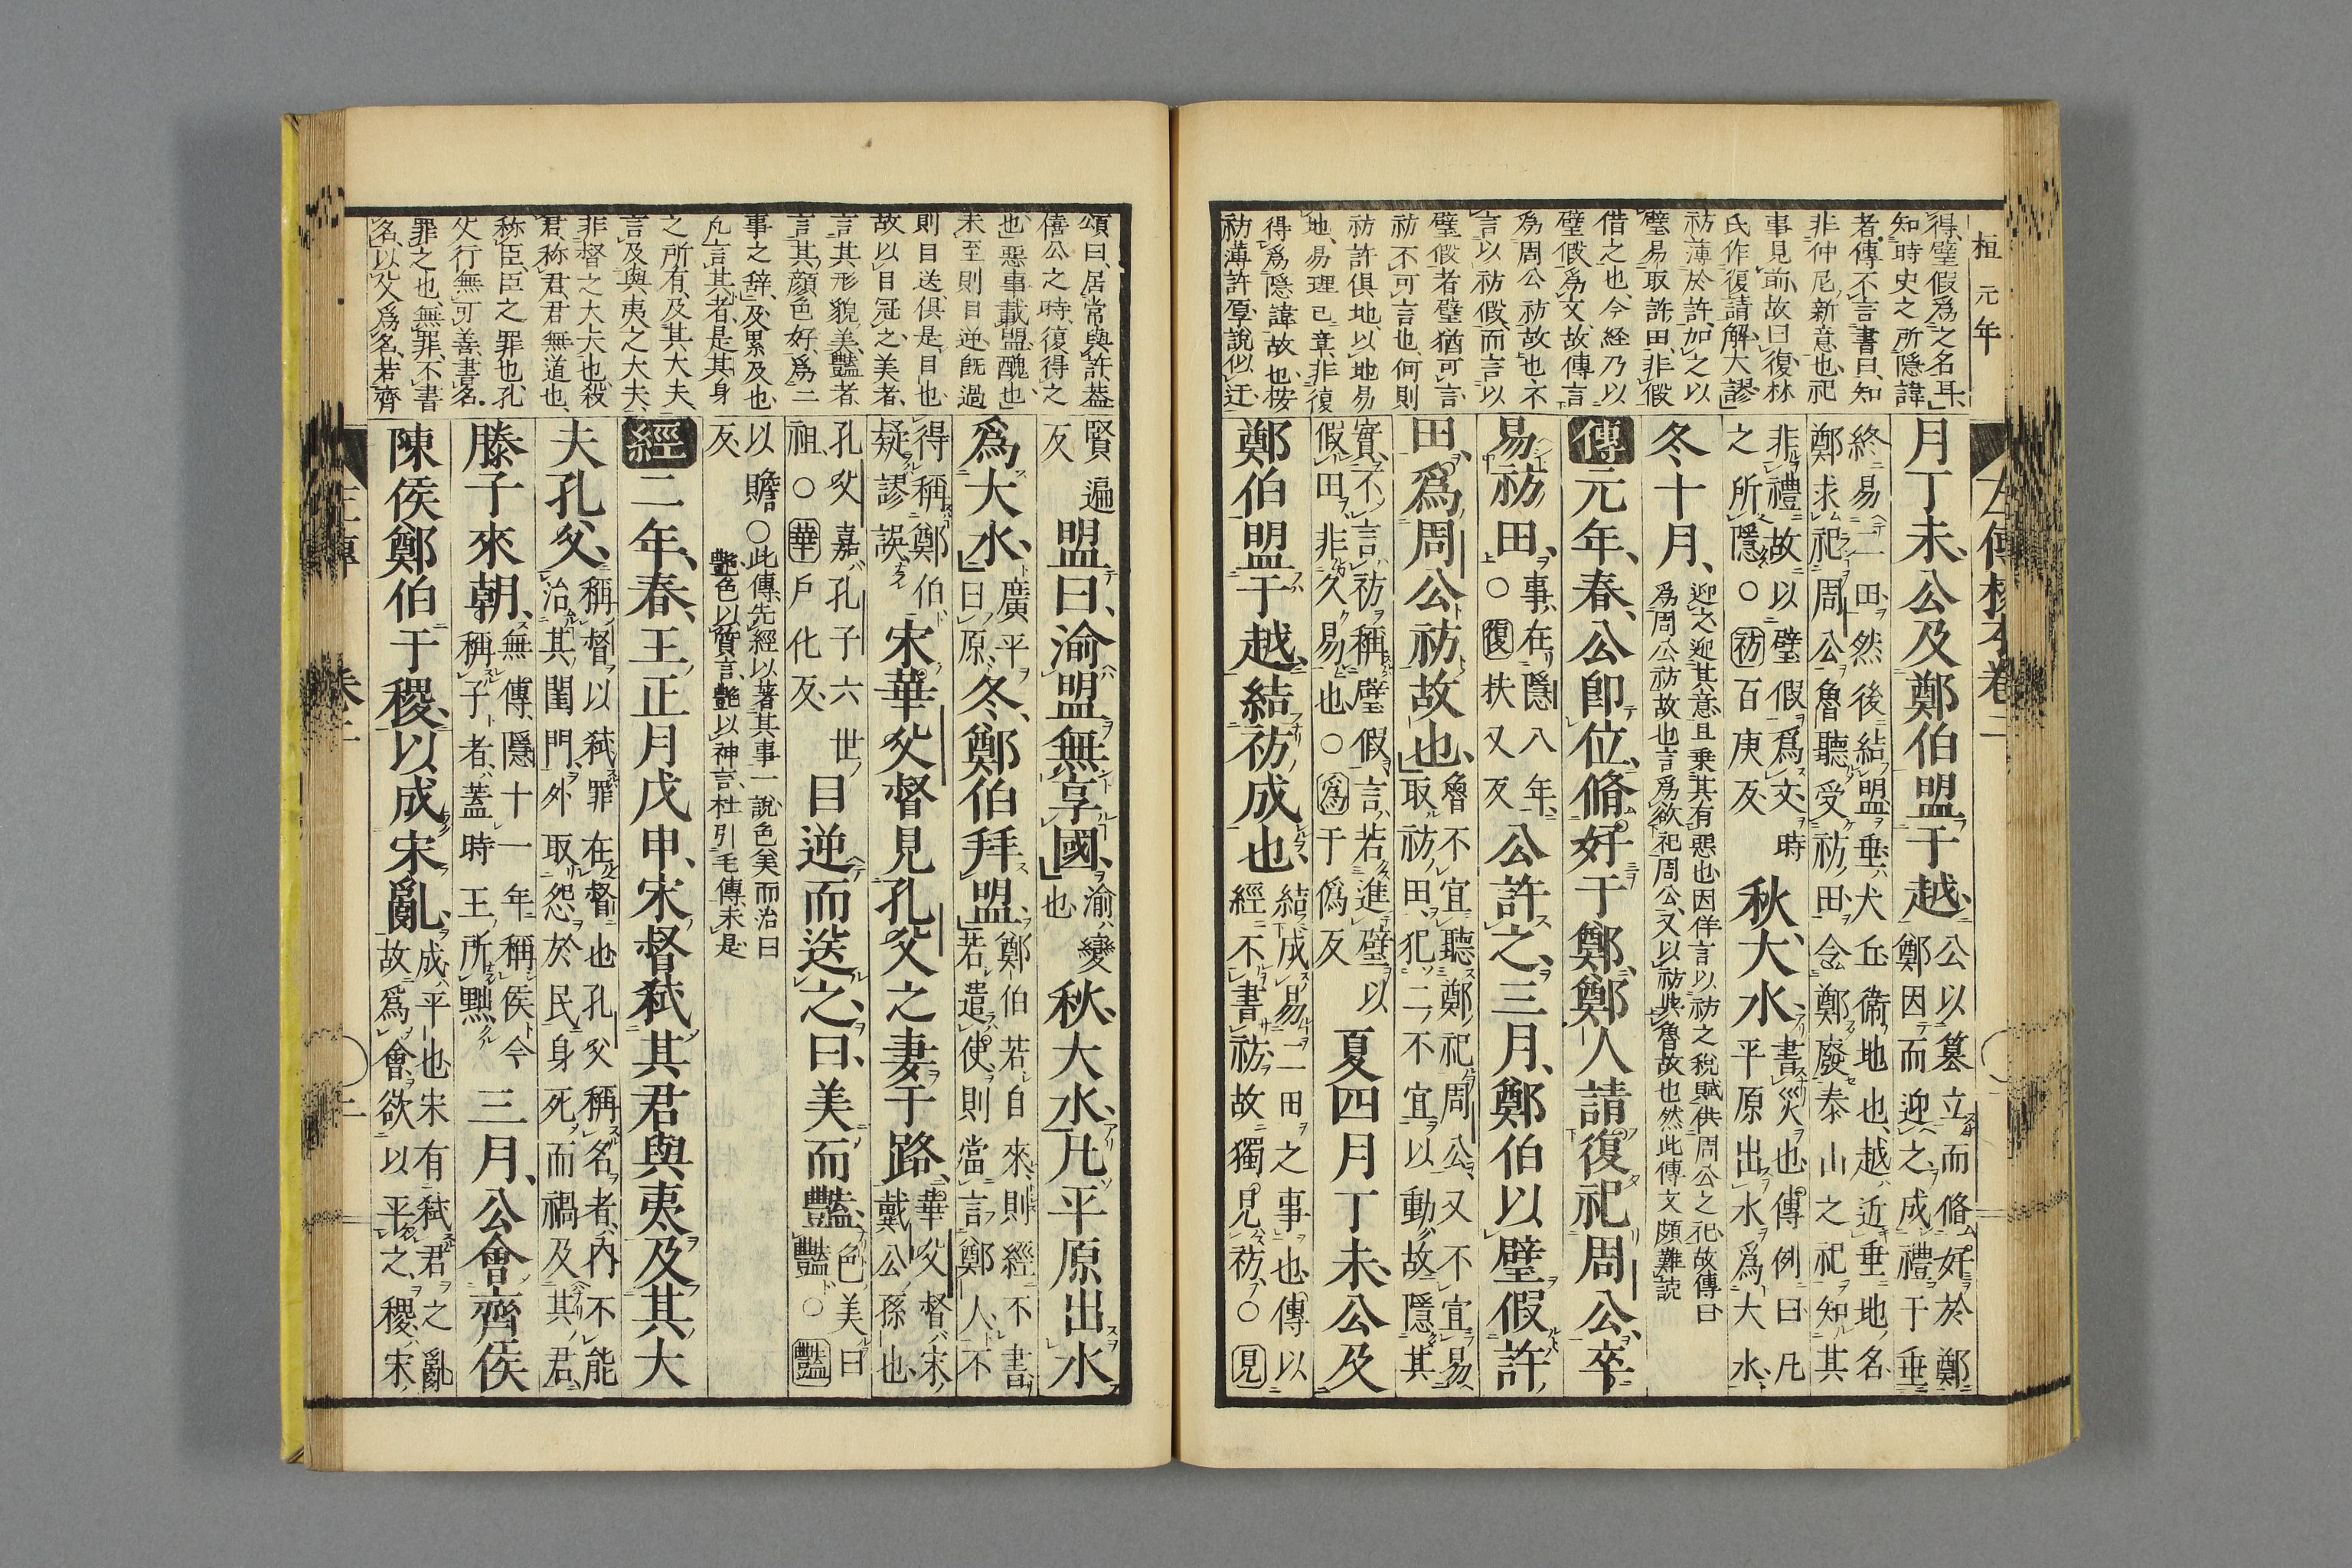 桓元年
左傳校本卷二
得璧假爲之名耳
知時史之所隱諱
者傳不言書曰知
非仲尼新意也祀
事見前故曰復林
氏作復請解大謬
祊薄於許加之以
璧易取許田非假
借之也今経乃以
璧假爲文故傳言
爲周公祊故也不
言以祊假而言以
璧假者璧猶可言
祊不可言也何則
祊許俱地以地易
地易理已章非復
得爲隱諱故也桉
祊薄許厚說似迂
月丁未、公及鄭伯盟于越、公以簒立而脩好於鄭鄭因而迎之成禮于垂
終易二田然後結盟垂犬丘衛地也越近垂地名
鄭求祀周公魯聽受祊田令鄭廢泰山之祀知其
非禮故以璧假爲文時之所隱○祊百庚反秋、大水、書災也傳例曰凡平原出水爲大水
冬十月、迎之迎其意且乗其有惡也因佯言以祊之税賦供周公之祀故傳曰
爲周公祊故也言爲欲祀周公又以祊與魯故也然此傳文頗難読
傳元年、春、公卽位、脩好于鄭、鄭人請復祀周公、卒
易祊田、事在隱八年○復扶又反公許之、三月、鄭伯以璧假許
田、爲周公祊故也、魯不宜聽鄭祀周公又不宜易取祊田犯二不宜以動故隱其
實不言祊稱璧假言若進璧以假田非久易也○爲于僞反夏四月丁未、公及
鄭伯盟于越、結祊成也結成易二田之事也傳以經不書祊故獨見祊○見
頌曰居常與許葢
僖公之時復得之
也惡事載盟醜也
未至則目逆既過
則目送俱是目也
故以目冠之美者
言其形貌美豔者
言其顏色好爲二
事之辭及累及也
凡言其者是其身
之所有及其大夫
言及與夷之大夫
非督之大夫也殺
君称君君無道也
称臣臣之罪也孔
父行無可善書名
罪之也無罪不書
名以父爲名若齊
賢遍反盟曰、渝盟無享國、渝變也秋、大水、凡平原出水
爲大水、廣平曰原冬、鄭伯拜盟、鄭伯若自來則經不書若遣使則當言鄭人不
得稱鄭伯疑謬誤宋華父督見孔父之妻于路、華父督宋戴公孫也
孔父嘉孔子六世祖○華戶化反目逆而送之、曰、美而豔、色美曰豔○豔
以贍反○此傳先經以著其事一說色美而治曰
艷色以質言艷以神言杜引毛傳未是
經二年、春、王正月戊申、宋督弑其君與夷及其大
夫孔父、稱督以弑罪在督也孔父稱名者内不能治其閨門外取怨於民身死而禍及其君
滕子來朝、無傳隱十一年稱侯今稱子者蓋時王所黜三月、公會齊侯
陳侯鄭伯于稷、以成宋亂、成平也宋有弑君之亂故爲會欲以平之稷宋